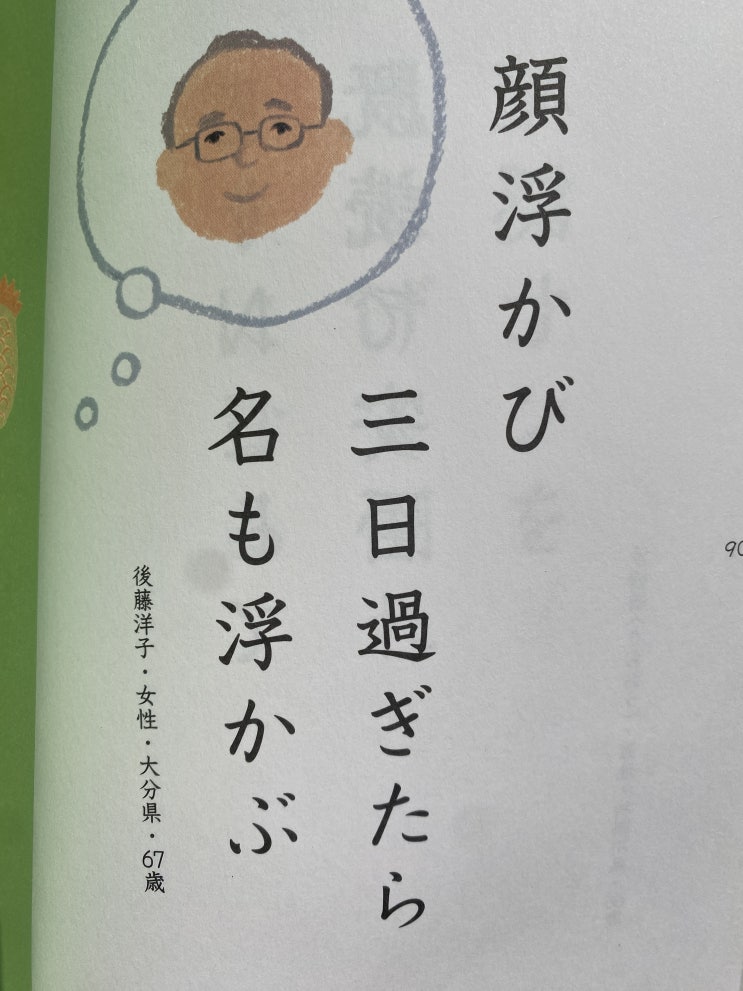 顔浮かび
三日過ぎたら
名も浮かぶ
後藤洋子・女性・大分県・67歳
90